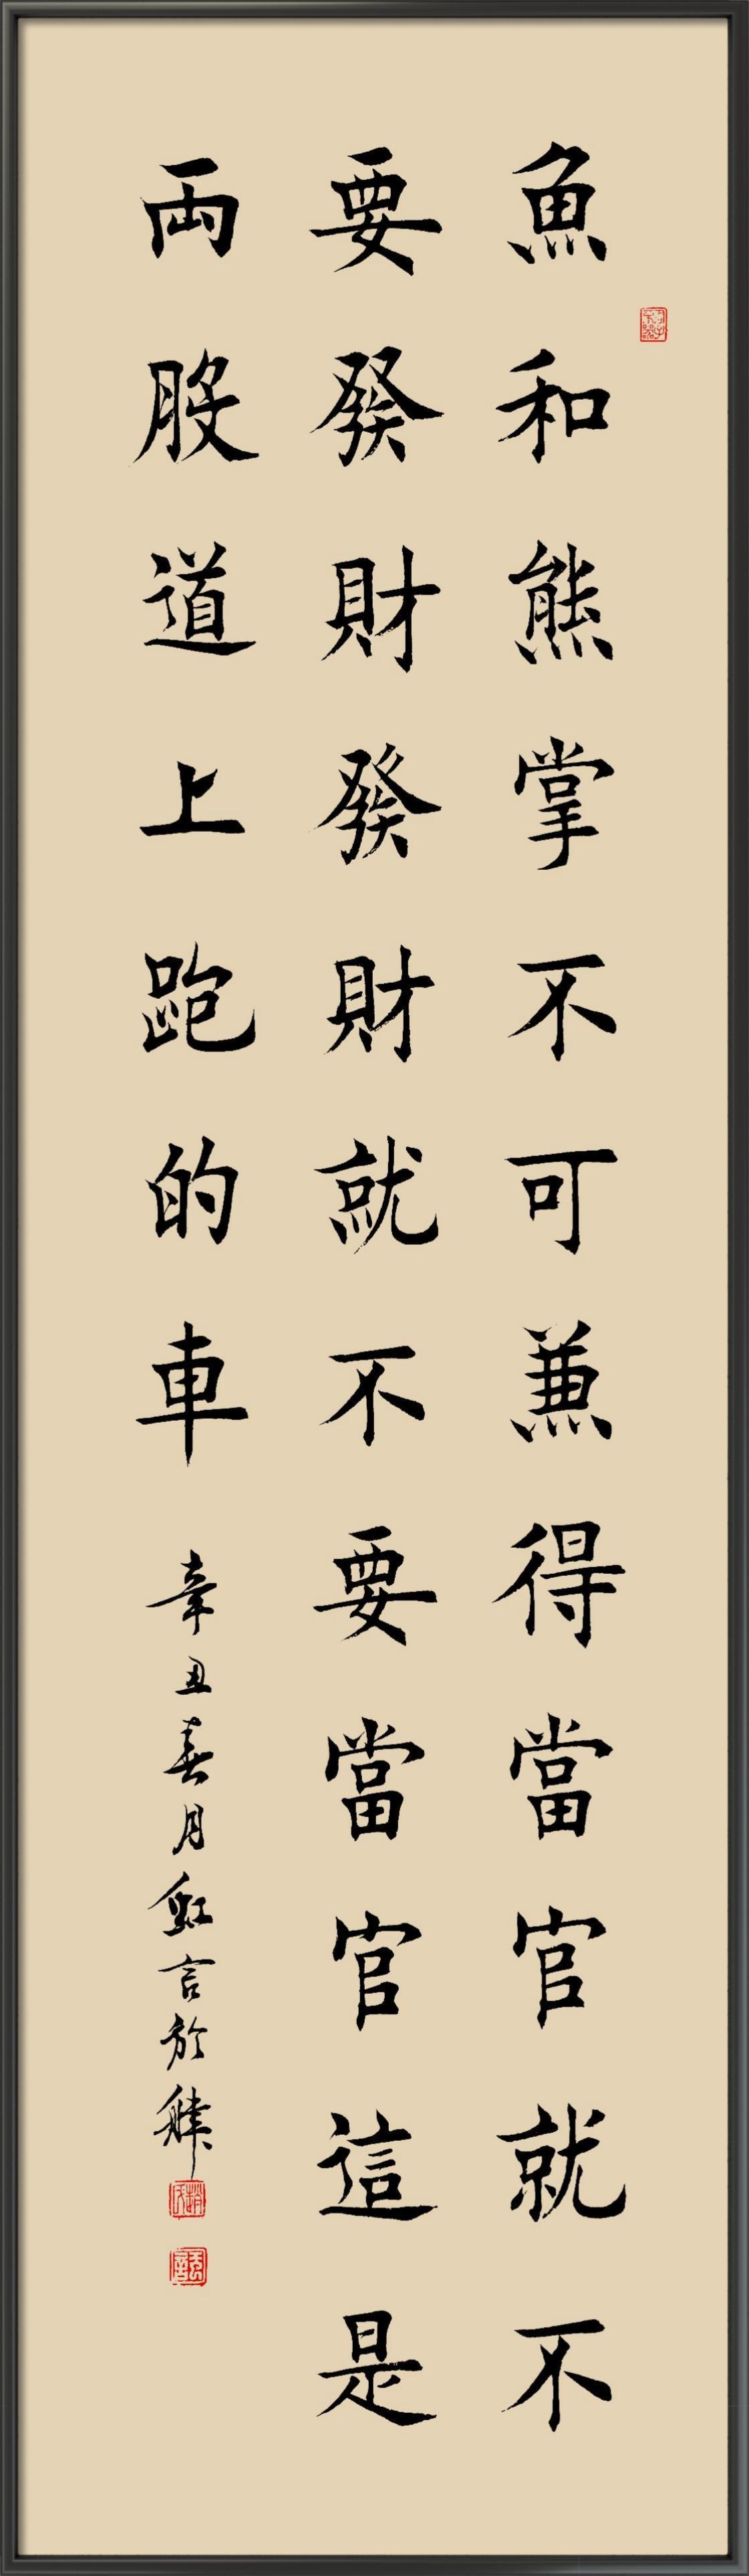 魚和熊掌不可兼得當官就不
要發財發財就不要當官這是
両股道上跑的車
辛丑春月虹言於